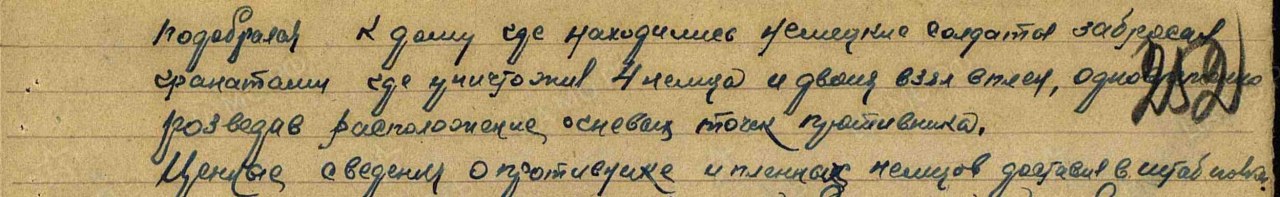 подобрался к дому где находились немецкие солдаты забросал
гранатами где уничтожив 4 немца и двоих взял в плен, одновременно
розведав расположение огневых точек противника.
Ценные сведения о противнике и пленных немцов доставил в штаб полка.
252